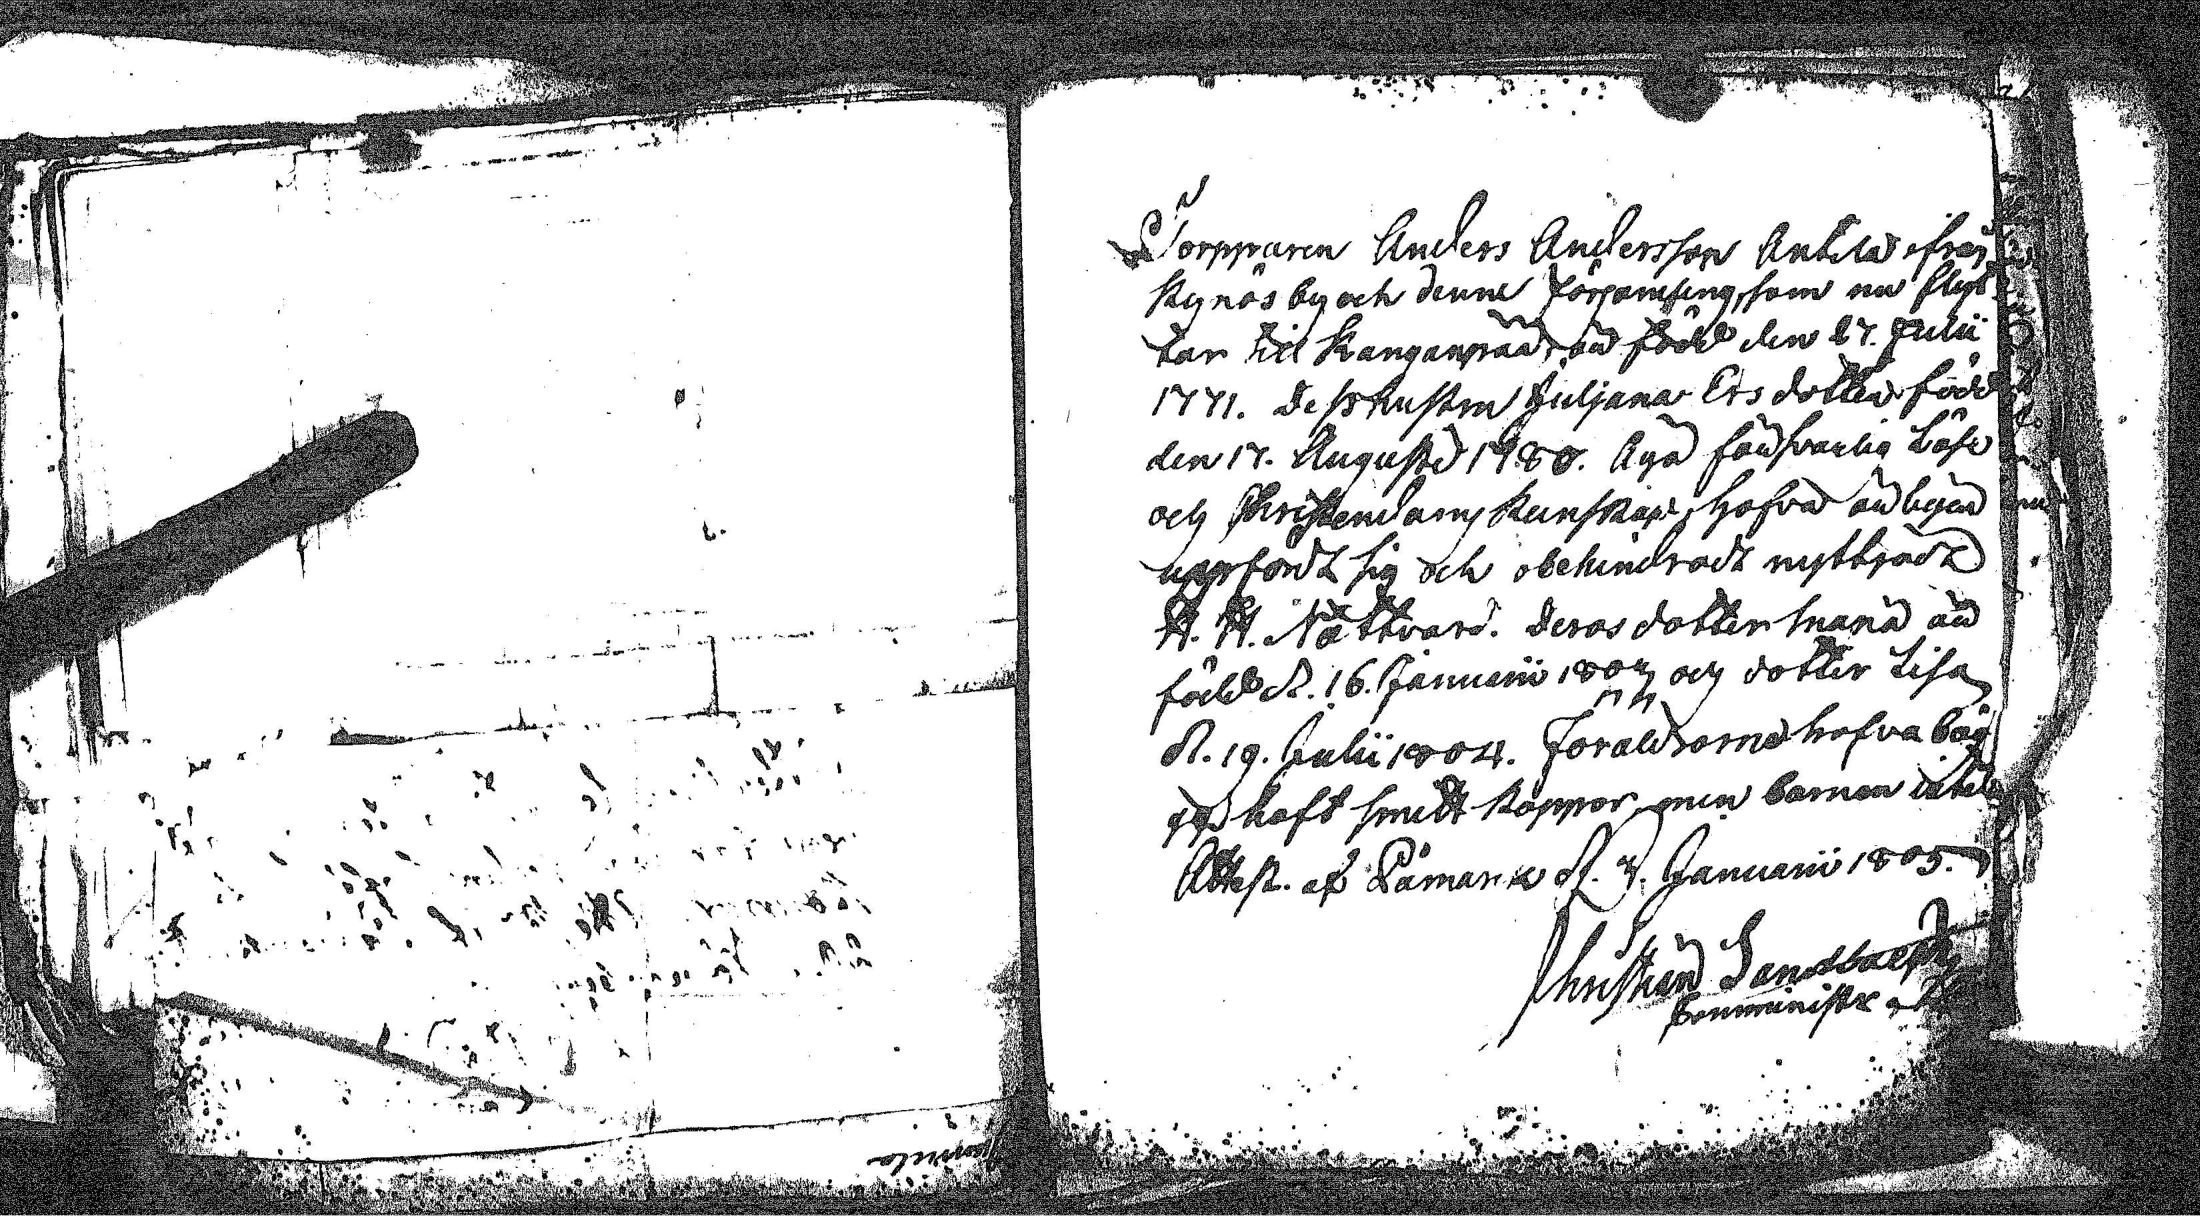 Torpparen Anders Andersson Antila ifrån
Kynäs by och denne församling, som nu flyt-
tar till Kanganpää, är född den 27. Julii
1771. Dess hustru Juljana Ersdotter född
den 17. Augusti 1780. Äga försvarlig Läse
och Christendoms Kunskap, hafva ärligen
uppfördt sig och obehindradt nyttjadt
H. H. Nattvard. Deras dotter Maria är
född d. 16. Januarii 1802 och dotter Lisa
d. 19. Julii 1804. Föräldrarne hafva båg
ge haft smitt Koppor, men barnen intet
Attest. af Påmark d. 7. Januarii 1805.
Christian
Comminister